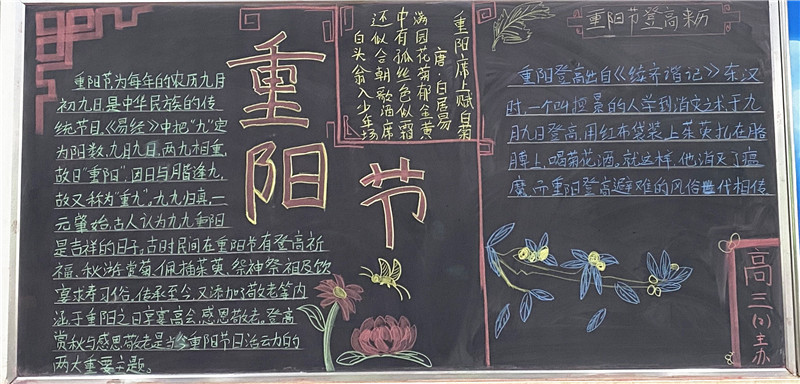 重阳节
重阳节为每年的农历九月
初九日,是中华民族的传
统节日。《易经》中把“九”定
为阳数,九月九日,两九相重,
故曰“重阳”,因日与月皆逢九,
故又称为“重九”。九九归真,一
元肇始,古人认为九九重阳
是吉祥的日子,古时民间在重阳节有登高祈
福、秋游赏菊、佩插茱萸、祭神祭祖及饮
宴求寿习俗。传承至今,又添加了敬老等内
涵于重阳之日享宴高会,感恩敬老。登高
赏秋与感恩敬老是当今重阳节日活动的
两大重要主题。
重阳席上赋白菊
唐·白居易
满园花菊郁金黄
中有孤丛色似霜
还似今朝歌酒席
白头翁入少年场
重阳节登高来历
重阳登高出自《续齐谐记》东汉
时,一个叫桓景的人学到消灾之术于九
月九日登高,用红布袋装上茱萸扎在胳
膊上,喝菊花酒,就这样,他消灭了瘟
魔,而重阳登高避难的风俗世代相传
高三(3)主办